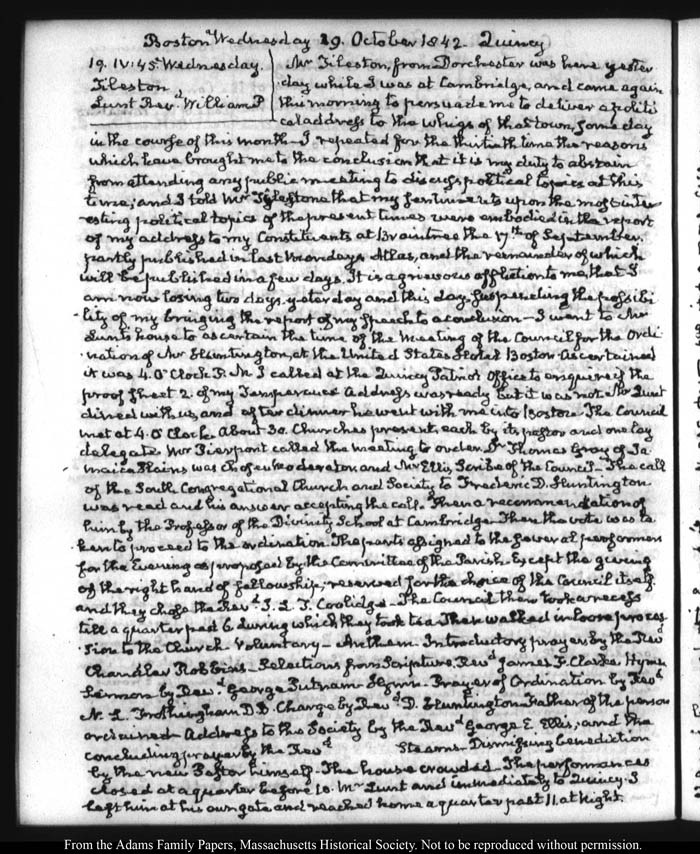 Boston Wednesday 19. October 1842. Quincy
19. IV:45. Wednesday.
Tileston
Lunt Revd. William P
Mr Tileston, from Dorchester was here yester
day while I was at Cambridge, and came again
this morning to persuade me to deliver a politi
cal address to the Whigs of that town, some day
in the course of this month. I repeated for the thirtieth time the reasons
which have brought me to the conclusion that it is my duty to abstain
from attending any public meeting to discuss political topics at this
time; and I told Mr Tylestone that my sentiments upon the most inte
resting political topics of the present times were embodied in the report
of my address to my Constituents at Braintree the 17th of September.
partly published in last Monday's Atlas, and the remainder of which
will be published in a few days. It is a grievous affliction to me, that I
am now losing two days, yesterday and this day. Suspending the possibi
lity of my bringing the report of my Speech to a conclusion — I went to Mr
Lunt's house to ascertain the time of the meeting of the Council for the Ordi
nation of Mr Huntington, at the United States Hotel Boston. Ascertained
it was 4. O'Clock P.M. I called at the Quincy Patriot Office to enquire if the
proof sheet 2. of my Temperance Address was ready but it was not. Mr Lunt
dined with us, and after dinner he went with me into Boston. The Council
met at 4. O'Clock. About 30. Churches present, each by its pastor and one lay
delegate. Mr Pierpont called the meeting to order. Dr Thomas Gray of Ja
maica Plains was chosen Moderator, and Mr Ellis, Scribe of the Council — The call
of the South Congregational Church and Society to Frederic D. Huntington
was read and his answer accepting the call. Then a recommendation of
him by the Professor of the Divinity School at Cambridge. Then the vote was ta
ken to proceed to the ordination. The parts assigned to the several performers
for the Evening as proposed by the Committee of the Parish. Except the giving
of the right hand of fellowship, reserved for the choice of the Council itself
and they chose the Revd. J. I. T. Coolidge — The Council then took a recess
till a quarter past 6. during which they took tea. Then walked in loose proces
sion to the Church. Voluntary — Anthem. Introductory prayer by the Revd
Chandler Robbins — Selections from Scripture, Revd James F. Clarke. Hymn
Sermon by Revd. George Putnam — Hymn — Prayer of Ordination by Revd
N. L. Frothingham D.D. Charge by Revd D. Huntington Father of the person
ordained — Address to the Society by the Revd George E. Ellis, and the
concluding prayer by the Revd Stearns — Dismissing benediction
by the new Pastor himself. The house crowded — The performances
closed at a quarter before 10. Mr Lunt and immediately to Quincy. I
left him at his own gate and reached home a quarter past 11. at Night.
From the Adams Family Papers, Massachusetts Historical Society. Not to be reproduced without permission.